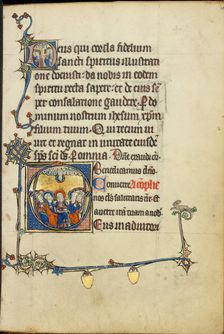 Deus qui corda fidelium
sancti spiritus illustratione
docuisti: da nobis in eodem
spiritu recta sapere: et de eius semper
consolatione gaudere. P do
minum nostrum ihesum xpm
filium tuum. Qui tecum vi
uit et regnat in unitate eiusdem
sps sci ds P omnia. Dne exaudi
Benedicamus dno
Conuerte
nos ds salutaris nr
et auerte iram tuam a nob
Deus in adiutor